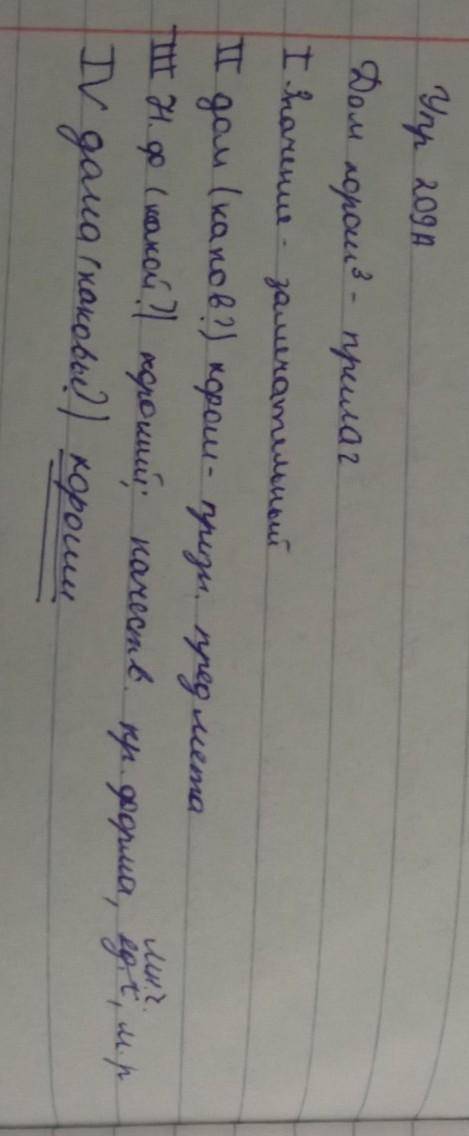 Упр 209А
Дом хорош³ - прилаг
I Значение - замечательный
II дом (каков?) хорош - призн. предмета
III Н. ф (какой?) хороший; качеств. кр. форма, ед. ч, м. р
мн. ч.
IV дома (каковы?) хороши